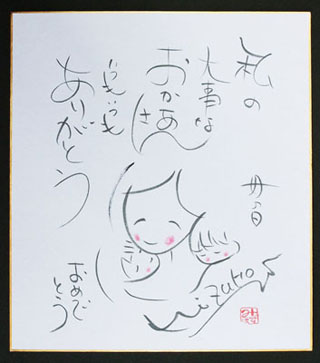 私の
大事な
おかあさん
いつもいつも
ありがとう
母の日
おめで
とう